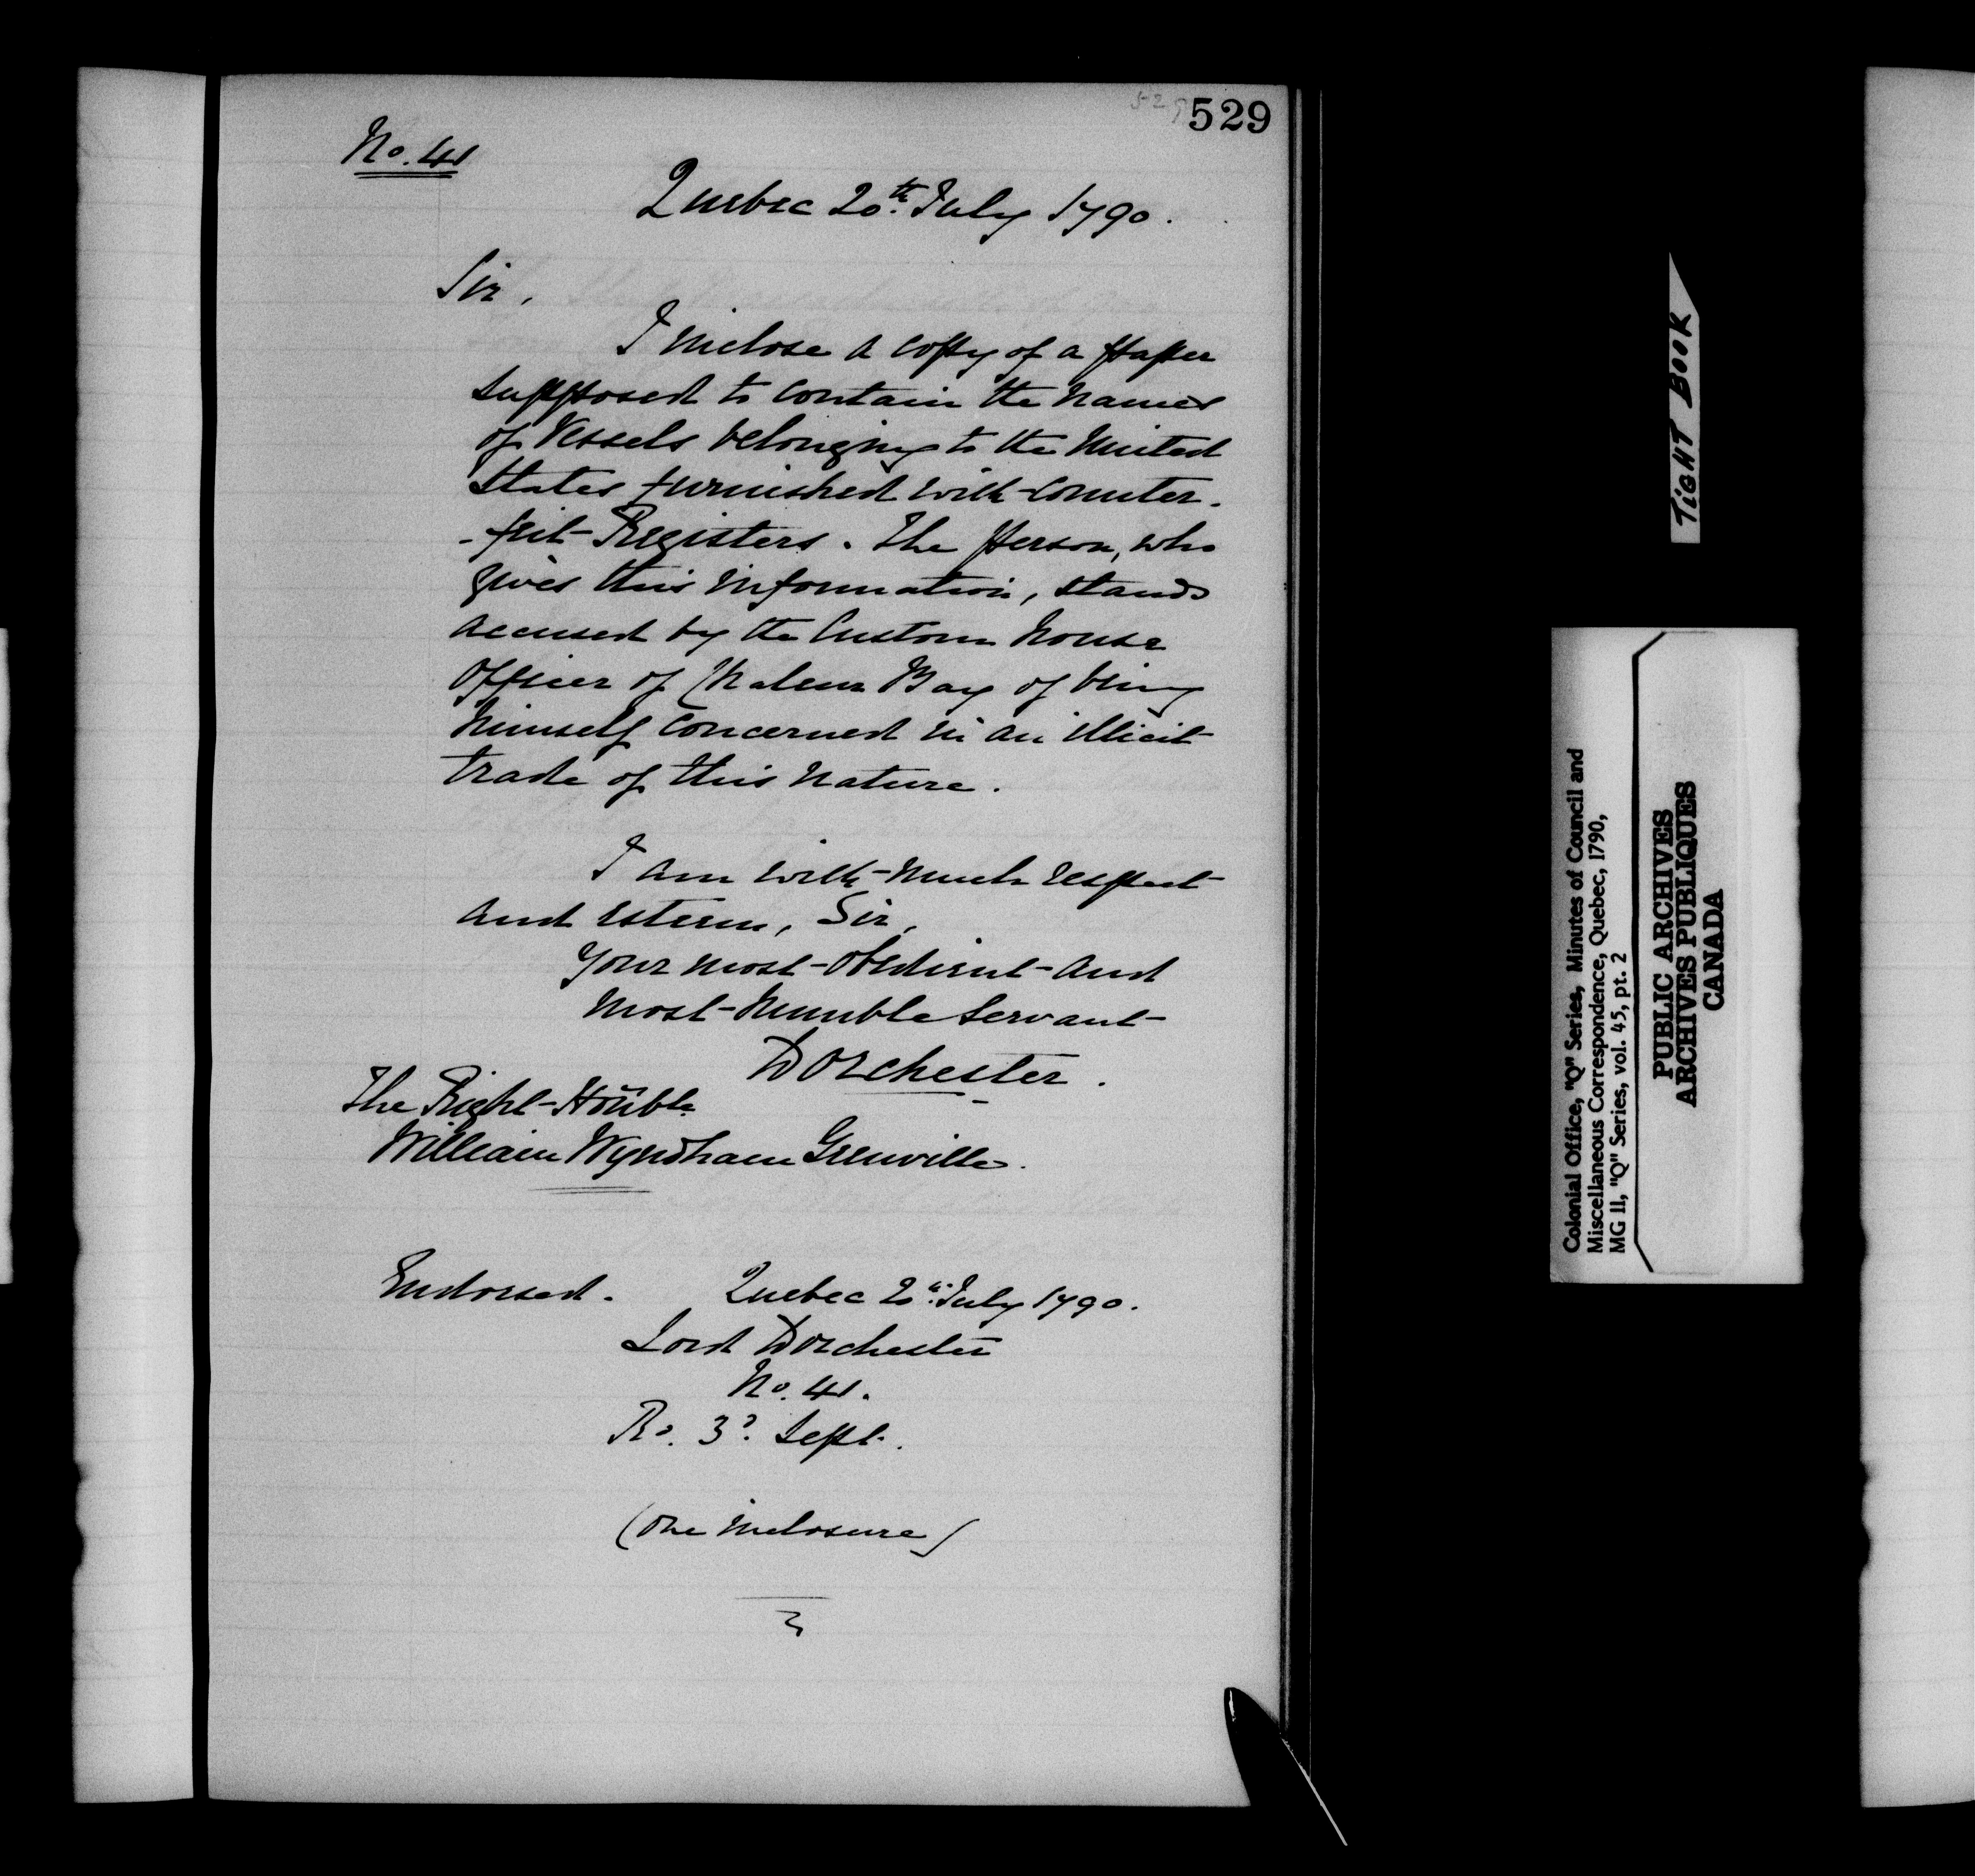 529
529
No. 41
Quebec 20th July 1790.
Sir,
I inclose a copy of a paper
supposed to contain the names
of Vessels belonging to the United
States furnished with counter-
-feit Registers. The person, who
gives this information, stands
accused by the Custom house
Officer of Chaleur Bay of being
himself concerned in an illicit
trade of this nature.
I am with much respect
and esteem, Sir,
Your most obedient and
most humble Servant
Dorchester.
The Right Honble
William Wyndham Grenville.
Endorsed. Quebec 20th July 1790.
Lord Dorchester
No. 41.
Ro. 3d Sept.
(One inclosure)
TIGHT BOOK
Colonial Office, "Q" Series, Minutes of Council and
Miscellaneous Correspondence, Quebec, 1790,
MG 11, "Q" Series, vol. 45, pt. 2
PUBLIC ARCHIVES
ARCHIVES PUBLIQUES
CANADA